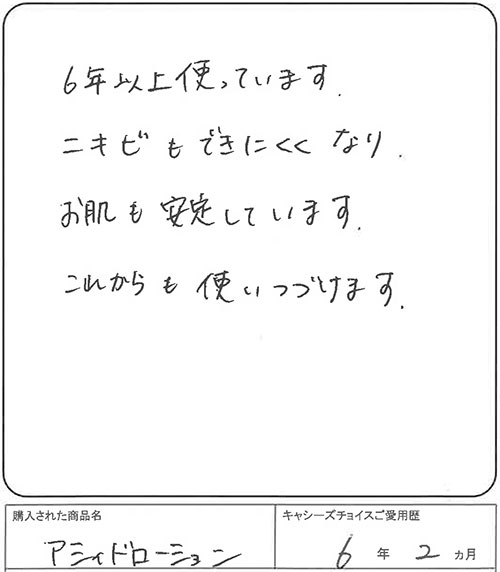 6年以上使っています.
ニキビもできにくくなり.
お肌も安定しています.
これからも使いつづけます.
購入された商品名
キャシーズチョイスご愛用歴
アシィドローション
6年2ヵ月